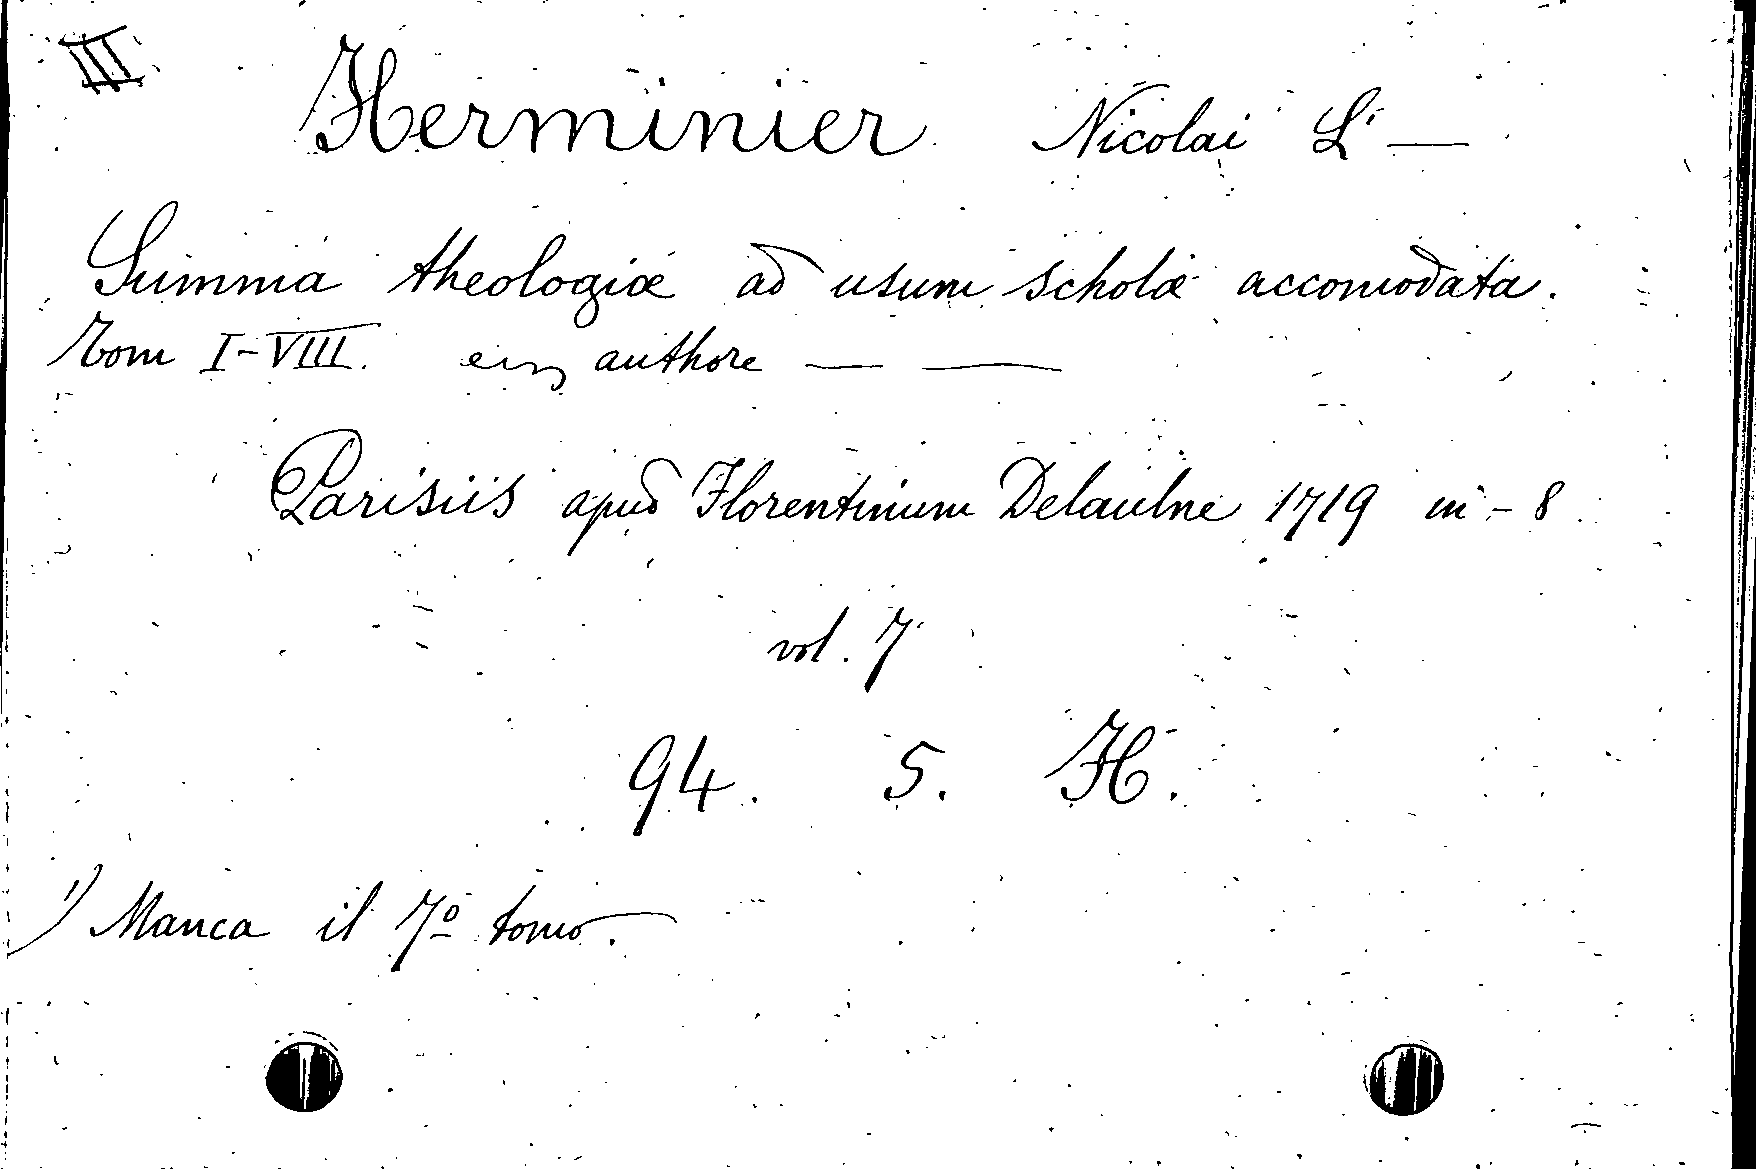 III
Herminier Nicolai L'—
Summa theologiæ ad usum scholæ accomodata.
Tom I-VIII. authore — —
Parisiis apud Florentinum Delaulne 1719 in-8
vol. 7
94. 5. H.
1) Manca il 7º tomo.